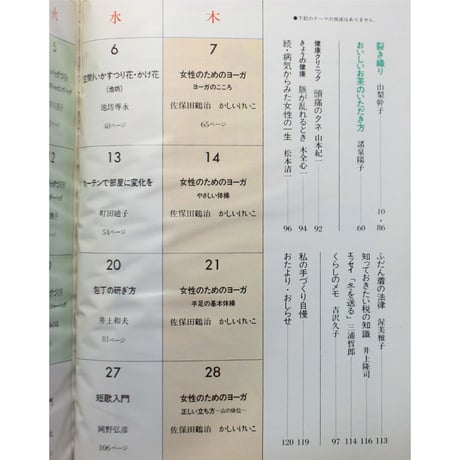 水
木
5
6
空間をいかすつり花・かけ花
(池坊)
池坊専永
46ページ
7
女性のためのヨーガ
ヨーガのこころ
佐保田鶴治 かしいけいこ
65ページ
13
カーテンで部屋に変化を
町田廸子
54ページ
14
女性のためのヨーガ
やさしい体操
佐保田鶴治 かしいけいこ
20
包丁の研ぎ方
井上和夫
81ページ
21
女性のためのヨーガ
手足の基本体操
佐保田鶴治 かしいけいこ
27
短歌入門
岡野弘彦
106ページ
28
女性のためのヨーガ
正しい立ち方 ―山の体位―
佐保田鶴治 かしいけいこ
●下記のテーマの放送はありません。
裂き織り 山梨幹子 10・86
おいしいお茶のいただき方 諸泉陽子 60
健康クリニック 頭痛のタネ 山本紀一 92
きょうの健康 脈が乱れるとき 木全心一 94
続・病気からみた女性の一生 松本清一 96
ふだん着の法律 渥美雅子 113
知っておきたい税の知識 井上隆司 116
エッセイ「冬を送る」 三浦哲郎 114
くらしのメモ 吉沢久子 97
私の手づくり自慢 119
おたより・おしらせ 120